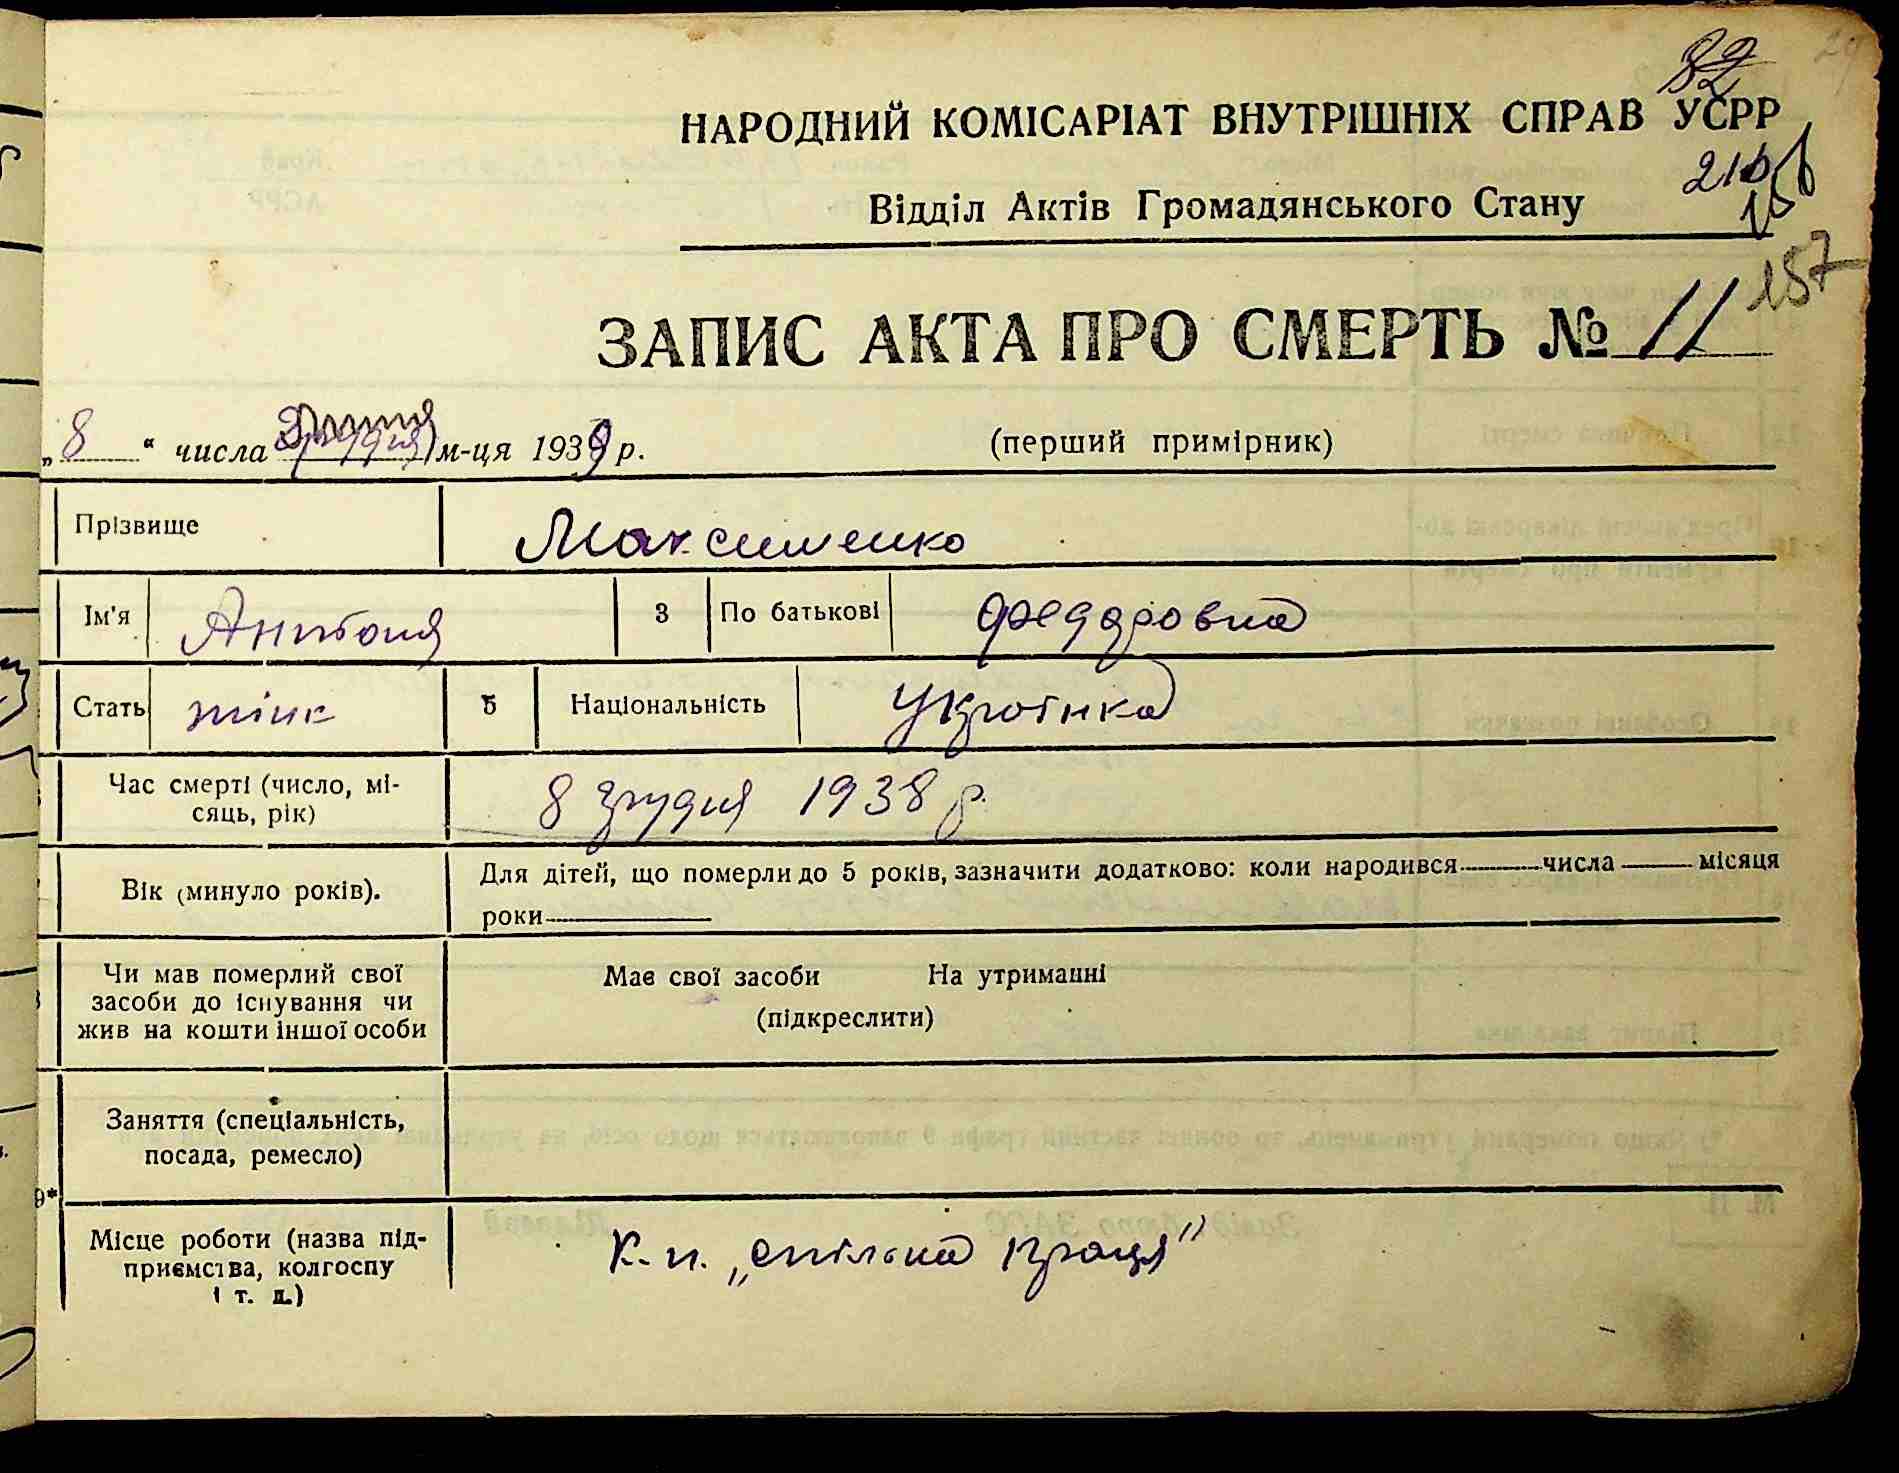 82
НАРОДНИЙ КОМІСАРІАТ ВНУТРІШНІХ СПРАВ УСРР
Відділ Актів Громадянського Стану
ЗАПИС АКТА ПРО СМЕРТЬ № 11
157
„8“ числа м-ця 1938 р. (перший примірник)
Прізвище Максименко
Ім'я 3 По батькові Феддровна
Стать жінк 5 Національність Українка
Час смерті (число, мі-
сяць, рік) 8 грудня 1938 р.
Вік (минуло років). Для дітей, що померли до 5 років, зазначити додатково: коли народився числа місяця
роки
Чи мав померлий свої
засоби до існування чи
жив на кошти іншої особи
Має свої засоби На утриманні
(підкреслити)
Заняття (спеціальність,
посада, ремесло)
9*
Місце роботи (назва під-
приємства, колгоспу
і т. д.)
К.п. „Спільна праця"